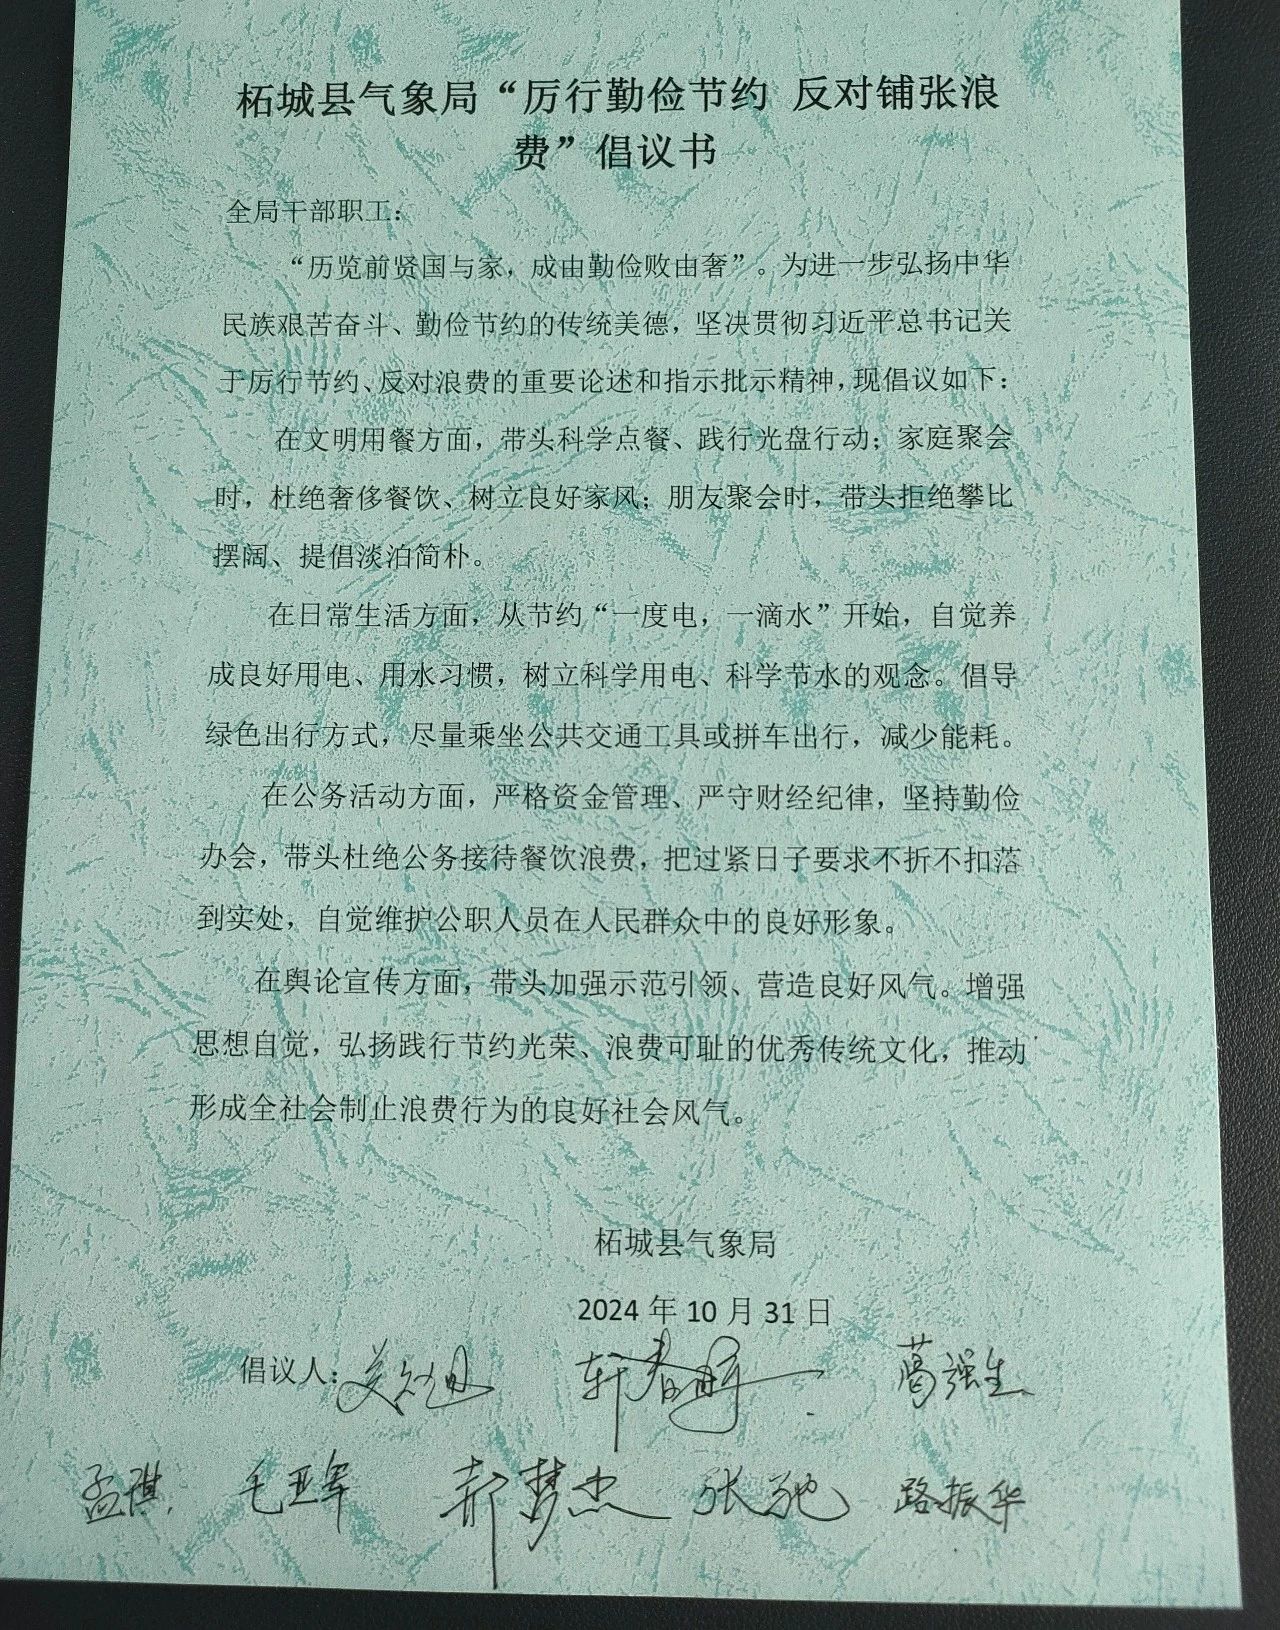 柘城县气象局“厉行勤俭节约 反对铺张浪
费”倡议书
全局干部职工：
“历览前贤国与家，成由勤俭败由奢”。为进一步弘扬中华
民族艰苦奋斗、勤俭节约的传统美德，坚决贯彻习近平总书记关
于厉行节约、反对浪费的重要论述和指示批示精神，现倡议如下：
在文明用餐方面，带头科学点餐、践行光盘行动；家庭聚会
时，杜绝奢侈餐饮、树立良好家风；朋友聚会时，带头拒绝攀比
摆阔、提倡淡泊简朴。
在日常生活方面，从节约“一度电，一滴水”开始，自觉养
成良好用电、用水习惯，树立科学用电、科学节水的观念。倡导
绿色出行方式，尽量乘坐公共交通工具或拼车出行，减少能耗。
在公务活动方面，严格资金管理、严守财经纪律，坚持勤俭
办会，带头杜绝公务接待餐饮浪费，把过紧日子要求不折不扣落
到实处，自觉维护公职人员在人民群众中的良好形象。
在舆论宣传方面，带头加强示范引领、营造良好风气。增强
思想自觉，弘扬践行节约光荣、浪费可耻的优秀传统文化，推动
形成全社会制止浪费行为的良好社会风气。
柘城县气象局
2024 年 10 月 31 日
倡议人： 葛强生
孟琪 毛亚军 郝梦杰 张驰 路振华